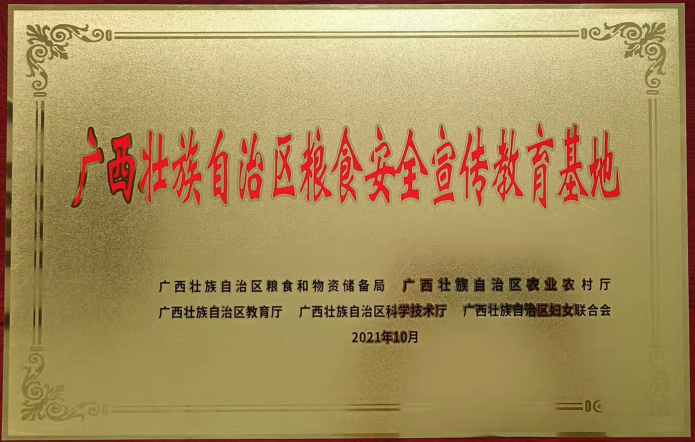 广西壮族自治区粮食安全宣传教育基地
广西壮族自治区粮食和物资储备局 广西壮族自治区农业农村厅
广西壮族自治区教育厅 广西壮族自治区科学技术厅 广西壮族自治区妇女联合会
2021年10月